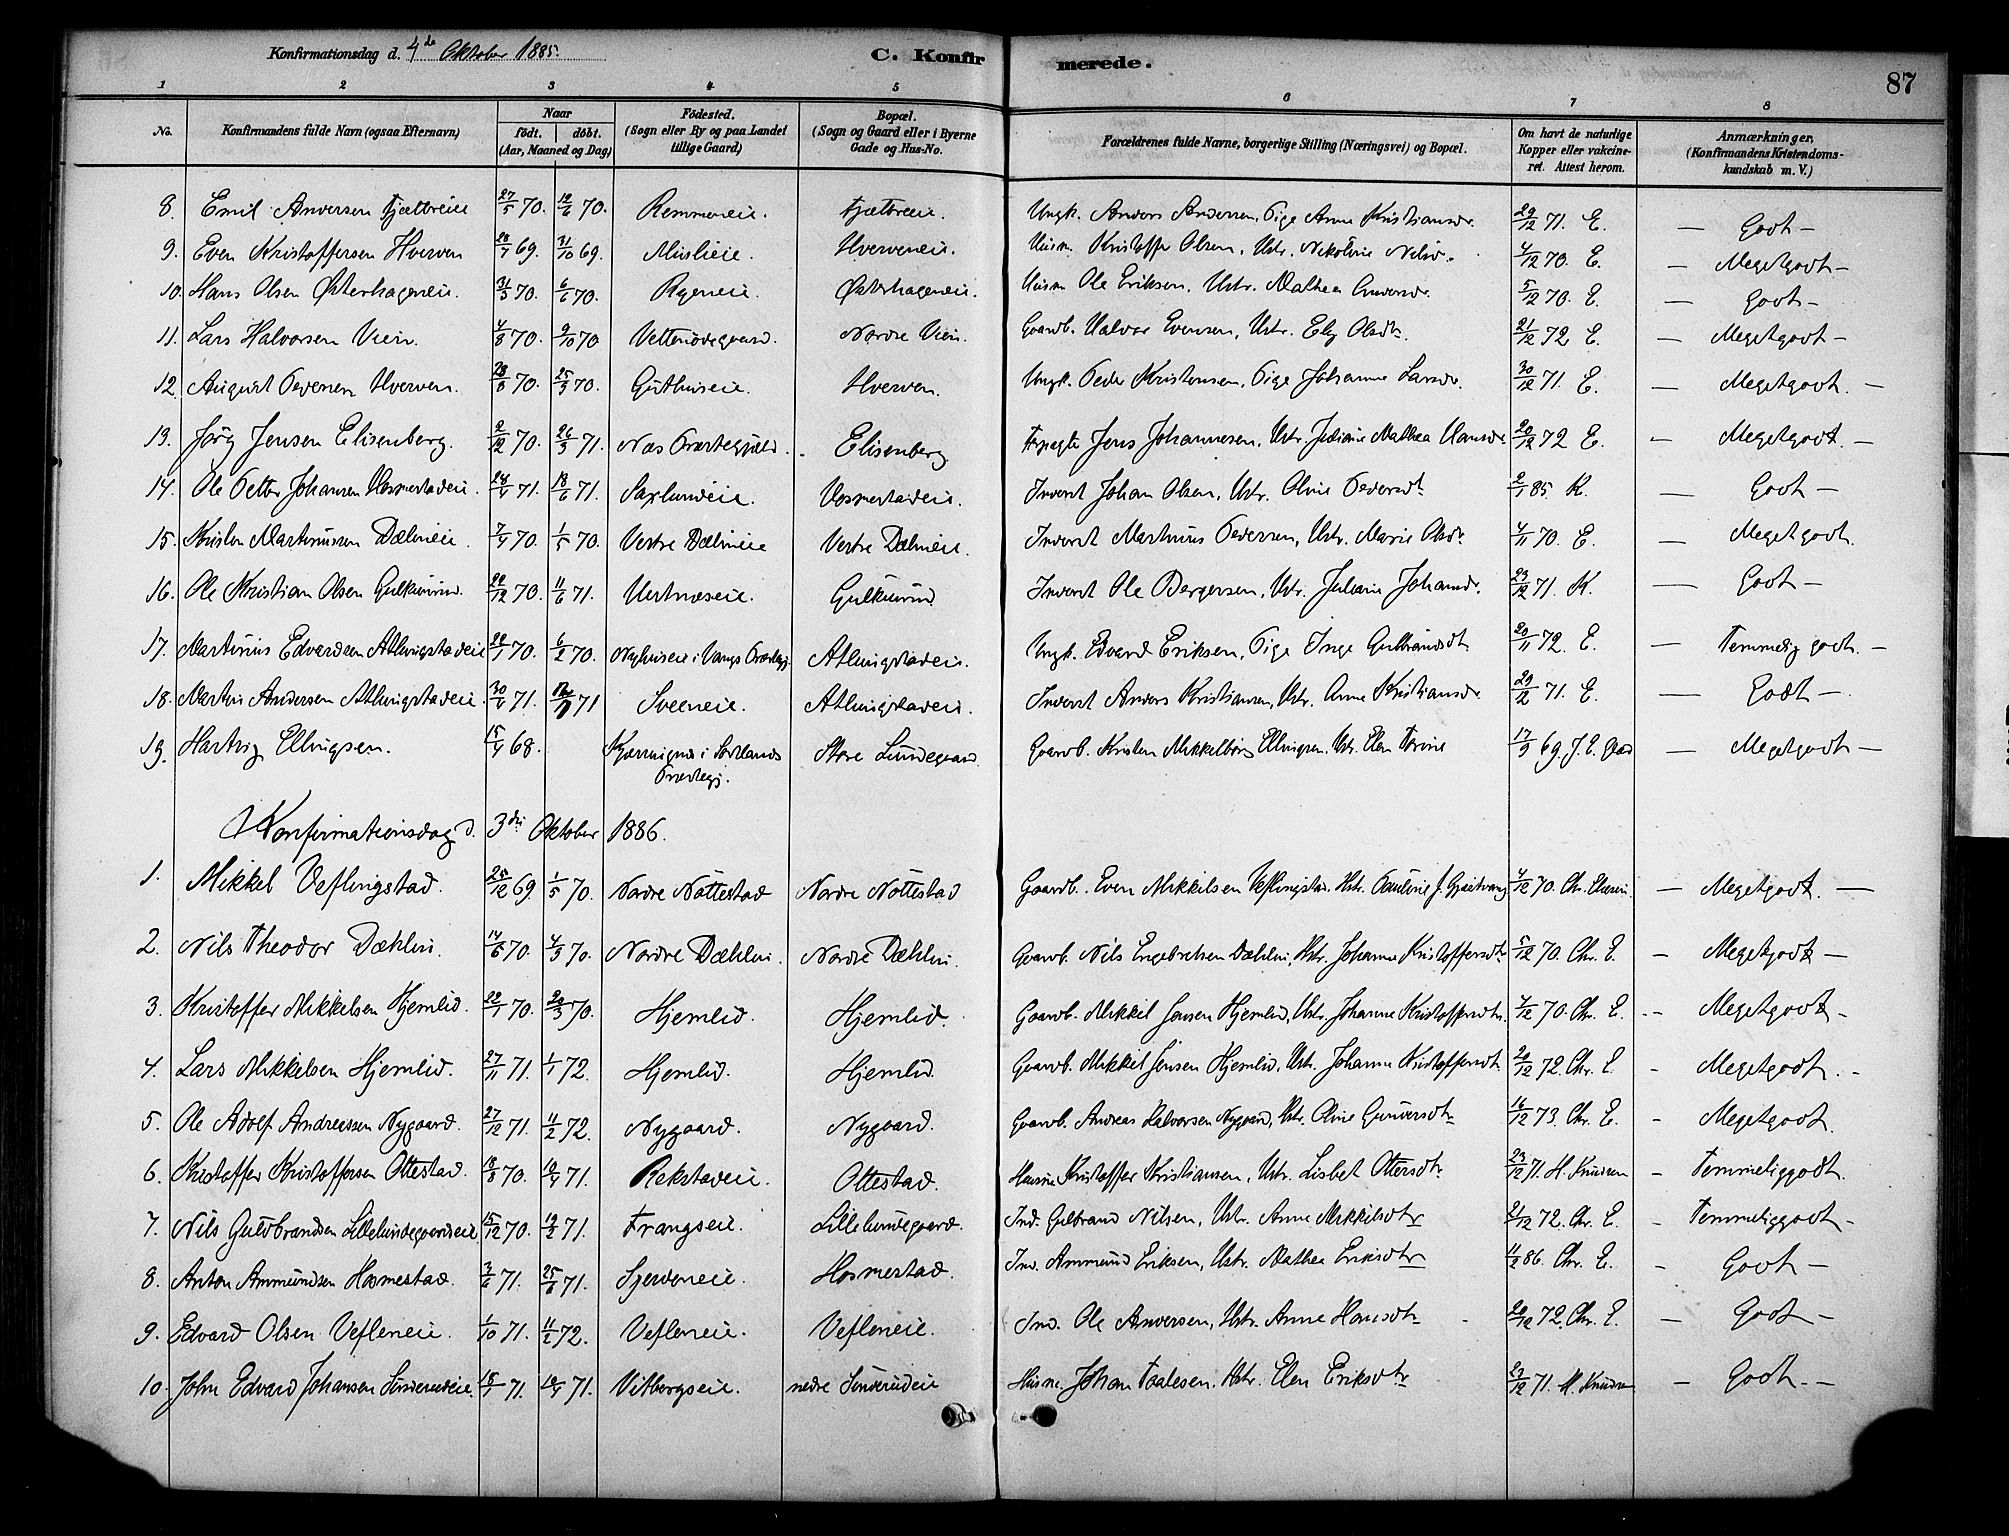 Konfirmationsdag d. 4de Oktober 1885. C. Konfirmerede. 87
1 2 3 4 5 6 7 8
No. Konfirmandens fulde Navn (ogsaa Efternavn) Naar født. døbt. (Aar, Maaned og Dag) Fødested. (Sogn eller By og paa Landet tillige Gaard) Bopæl. (Sogn og Gaard eller i Byerne Gade og Hus-No. Forældrenes fulde Navne, borgerlige Stilling (Næringsvei) og Bopæl. Om havt de naturlige Kopper eller vakcineret. Attest herom. Anmærkninger, (Konfirmandens Kristendomskundskab m. V.)
8. Emil Andersen Fjætbreie 27/5 70. 12/6 70. Remmeneie. Fjætbreie. Ungk. Anders Andersen, Pige Anne Kristiansdr. 29/12 71. E. — Godt —
9. Even Kristoffersen Hverven 28/7 69. 31/10 69. Muslieie. Hverveneie. Husm. Kristoffer Olsen, Ustr. Nikoline Nilsd. 4/12 70. E. — Megetgodt —
10. Hans Olsen Østerhageneie. 31/3 70. 6/6 70. Ryeneie. Østerhageneie. Husm. Ole Eriksen, Ustr. Mathea Andersdr. 5/12 70. E. — Godt —
11. Lars Halvorsen Vien. 4/8 70. 9/10 70 Vestre Nordre Vien. Gaardb. Halvor Evensen, Ustr. Eli Olsdtr. 21/12 72 E. — Megetgodt —
12. August Pedersen Hverven. 70. 25/3 70. Guthuseie. Hverven. Ungk. Peder Kristensen, Pige Johanne Larsdr. 30/12 71. E. — Megetgodt. —
13. Jørg Jensen Elisenberg. 2/12 70. 26/3 71. Næs Præstegjæld. Elisenberg Forpagter Jens Johannesen, Ustr. Juliane Mathea Hansdr. 20/12 72 E. — Megetgodt. —
14. Ole Petter Johansen Hosmestadeie. 24/4 71. 18/6 71. Saxlundeie. Hosmestadeie. Inderst Johan Olsen, Ustr. Oline Pedersdtr. 2/1 85. K. — Godt —
15. Kristen Martinussen Dælineie. 7/4 70. 1/5 70. Vestre Dælineie Vestre Dælineie. Inderst Martinus Pedersen, Ustr. Marie Olsdr. 4/11 70. E. — Megetgodt.
16. Ole Kristian Olsen Gulkuirud. 22/12 70. 11/6 71. Hestnæseie. Gulkuirud Inderst Ole Bergersen, Ustr. Juliane Johansdr. 23/12 71. K. — Godt —
17. Martinius Edvardsen Atlungstadeie 22/1 70. 6/2 70. Nyhuseie i Vangs Præstegj. Atlungstadeie. Ungk. Edvard Eriksen, Pige Inge Gulbrandsdt. 20/11 72. E. — Temmelig godt. —
18. Martin Andersen Atlungstadeie. 30/6 71. 71 Sveeneie. Atlungstadeie. Inderst Anders Kristiansen, Ustr. Anne Kristiansdr. 29/12 71. E. — Godt —.
19. Hartvig Ellingsen. 15/4 68. Kjerringnes i Sortlands Præstegj. Store Lundegaard. Gaardb. Kristen Mikkelborg Ellingsen. Ustr. Elen Torine 17/9 69. J. E. — Megetgodt —
Konfirmationsdag d. 3die Oktober 1886.
1. Mikkel Veflingstad. 25/12 69. 1/5 70. Nordre Nøttestad Nordre Nøttestad Gaardb. Even Mikkelsen Veflingstad. Ustr. Pauline J. Gjæstvang 4/12 70. Chr. — Megetgodt. —
2. Nils Theodor Dæhlin. 14/6 70. 4/9 70. Nordre Dæhlin. Nordre Dæhlin. Gaardb. Nils Engebretsen Dæhlin, Ustr. Johanne Kristoffersdtr 5/12 70. Chr. E. — Megetgodt —
3. Kristoffer Mikkelsen Hjemlid. 22/1 70. 20/3 70. Hjemlid. Hjemlid. Gaardb. Mikkel Jensen Hjemlid, Ustr. Johanne Kristoffersdtr. 4/12 70. Chr. E. — Megetgodt —
4. Lars Mikkelsen Hjemlid. 27/11 71. 1/1 72. Hjemlid. Hjemlid. Gaardb. Mikkel Jensen Hjemlid, Ustr. Johanne Kristoffersdt. 20/12 72. Chr. E. — Megetgodt. —
5. Ole Adolf Andreassen Nygaard. 27/12 71. 11/2 72. Nygaard. Nygaard. Gaardb. Andreas Halvorsen Nygaard, Ustr. Oline Gunersdtr 16/12 73. Chr. E. — Megetgodt.
6. Kristoffer Kristoffersen Ottestad. 18/8 70. 10/4 71. Rekstadeie. Ottestad. Husm. Kristoffer Kristiansen, Ustr. Lisbet Ottersdtr. 23/12 71. H. Knudsen — Temmeliggodt.
7. Nils Guldbrandsen Lillelundegaardseie. 15/12 70. 19/2 71. Frangseie. Lillelundegaard. Ind. Gulbrand Nilsen, Ustr. Anne Mikkelsdtr 21/12 72. Chr. E. — Temmeliggodt —
8. Anton Ammundsen Hosmestad. 3/6 71. 25/6 71. Sjerdeneie. Hosmestad. Ind. Ammund Eriksen, Ustr. Mathea Eriksdtr 11/2 86. Chr. E. — Godt —
9. Edvard Olsen Vefleneie. 1/10 71. 11/2 72. Vefleneie. Vefleneie. Ind. Ole Andersen, Ustr. Anne Hansdtr 20/12 72. Chr. E. — Godt —
10. John Edvard Johansen Sønderudeie. 15/1 71. 10/4 71. Vitbergseie. nedre Sønderudeie Husm. Johan Paalesen. Ustr. Elen Eriksdtr 23/12 71. H. Knudsen — Godt. —